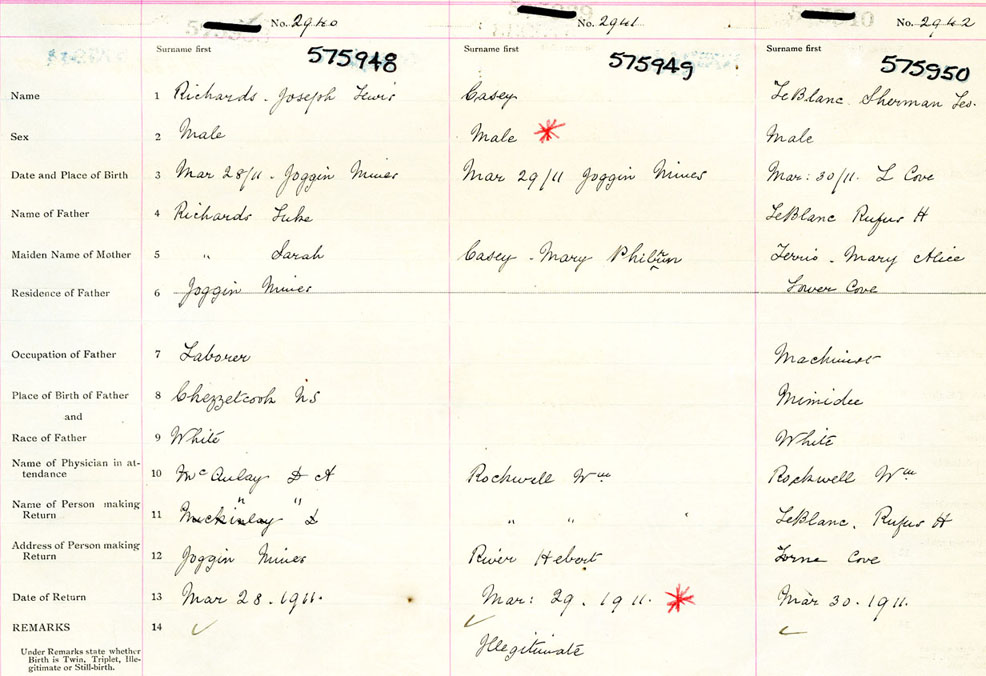 No. 2940 No. 2941 No. 2942
Surname first Surname first Surname first
575948 575949 575950
Name 1 Richards. Joseph Lewis Casey LeBlanc. Sherman Leo.
Sex 2 Male Male Male
Date and Place of Birth 3 Mar 28/11. Joggin Mines Mar 29/11 Joggin Mines Mar: 30/11. L Cove
Name of Father 4 Richards Luke LeBlanc Rufus H
Maiden Name of Mother 5 " Sarah Casey - Mary - Mary Alice
Residence of Father 6 Joggin Mines Lower Cove
Occupation of Father 7 Laborer Machinist
Place of Birth of Father 8 Chezzetcook NS
and
Race of Father 9 White White
Name of Physician in at-
tendance 10 McAulay D A Rockwell Wm Rockwell Wm
Name of Person making
Return 11 " " " " LeBlanc, Rufus H
Address of Person making
Return 12 Joggin Mines River Hebert Cove
Date of Return 13 Mar 28. 1911. Mar: 29. 1911. Mar 30. 1911.
REMARKS 14
Under Remarks state whether
Birth is Twin, Triplet, Ille-
gitimate or Still-birth.
Illegitimate